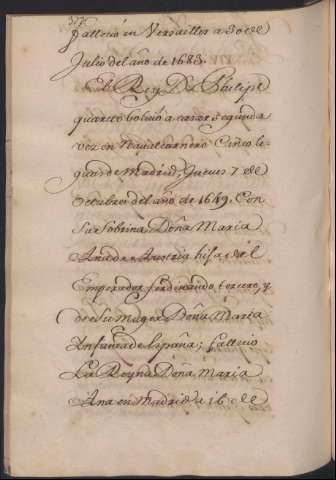 falleció en Versailles a 30 de
Julio del año de 1683.
El Rey Dn. Phelipe
quarto bolvió a casar segunda
vez en Navalcarnero Cinco le
guas de Madrid, Jueves 7 de
Octubre del año de 1649. Con
su Sobrina Doña Maria
Ana de Austria hija del
Emperador Ferdinando tercero, y
de su Muger Doña Maria
Infanta de España; fallecio
La Reyna Doña Maria
Ana en Madrid a 16 de